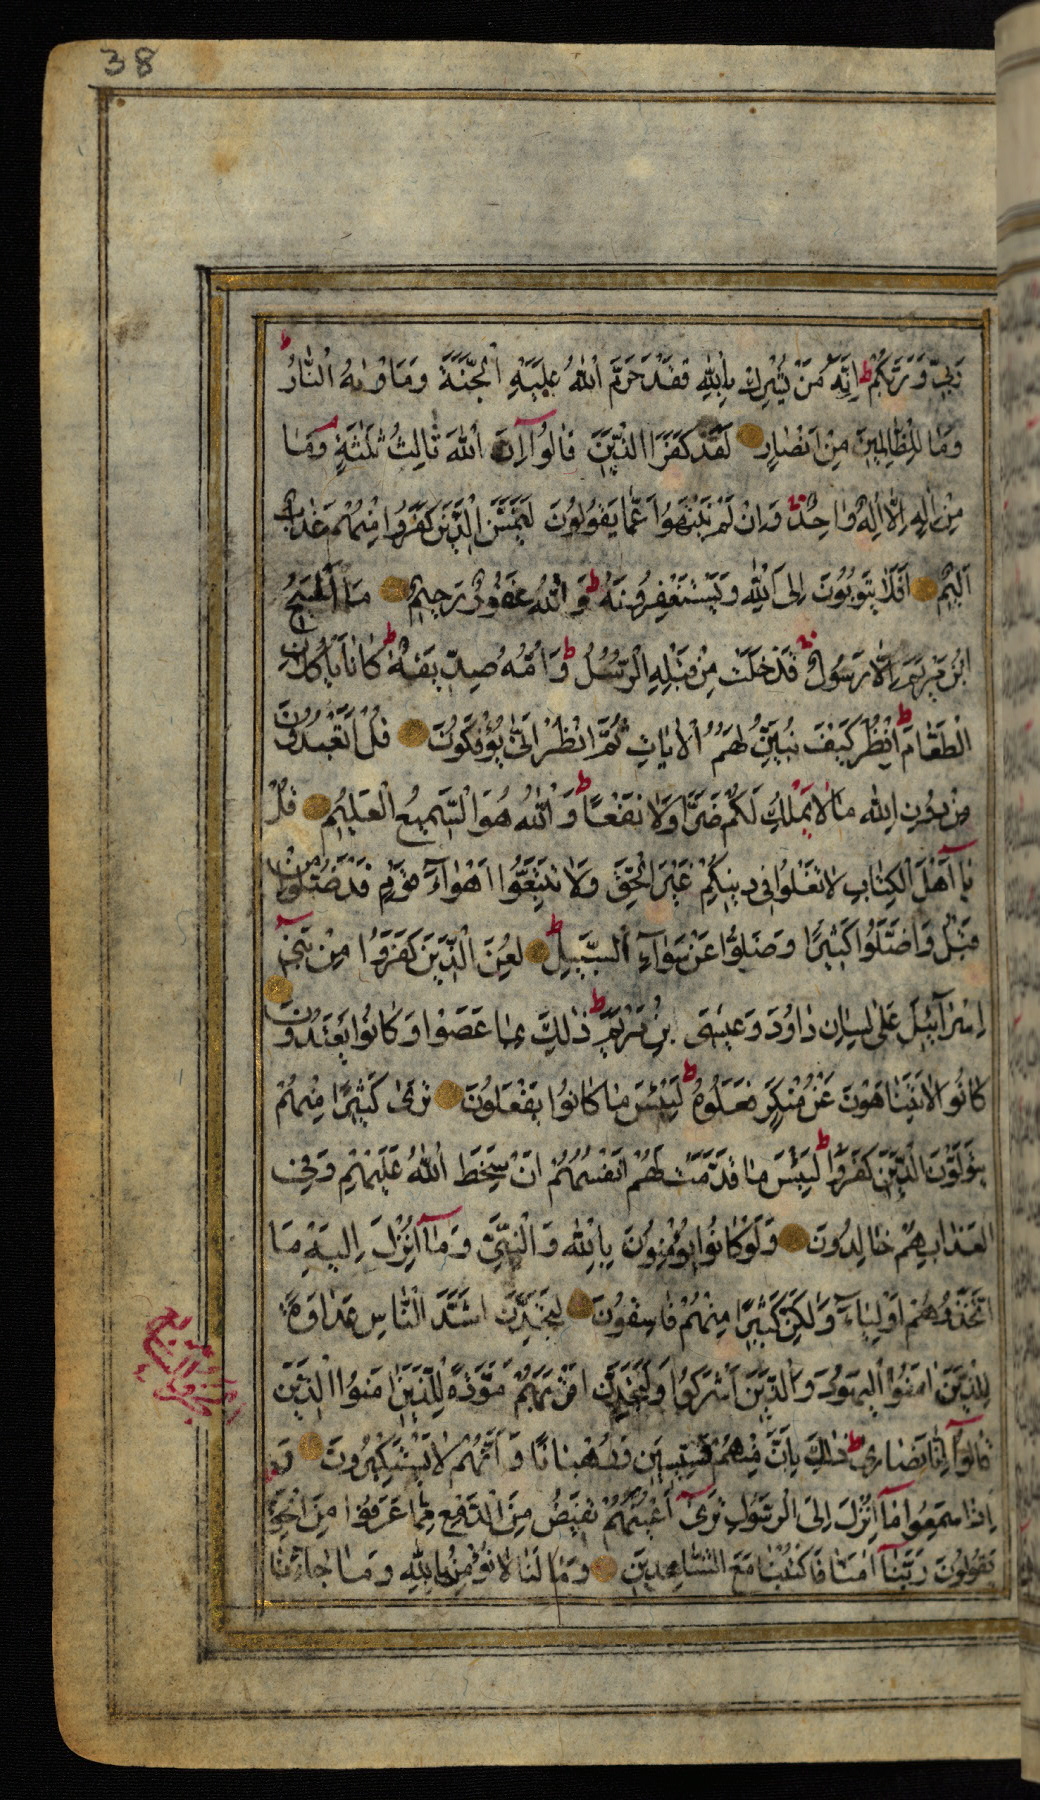 38
رَبِّي وَرَبَّكُمْ ط اِنَّهُ مَنْ يُشْرِكْ بِاللّٰهِ فَقَدْ حَرَّمَ اللّٰهُ عَلَيْهِ الْجَنَّةَ وَمَاْوٰىهُ النَّارُ ط
وَمَا لِلظَّالِمِينَ مِنْ اَنْصَارٍ لَقَدْ كَفَرَ الَّذِينَ قَالُوا اِنَّ اللّٰهَ ثَالِثُ ثَلٰثَةٍ م وَمَا
مِنْ اِلٰهٍ اِلَّا اِلٰهٌ وَاحِدٌ ط وَاِنْ لَمْ يَنْتَهُوا عَمَّا يَقُولُونَ لَيَمَسَّنَّ الَّذِينَ كَفَرُوا مِنْهُمْ عَذَابٌ
اَلِيمٌ اَفَلَا يَتُوبُونَ اِلَى اللّٰهِ وَيَسْتَغْفِرُونَهُ ط وَاللّٰهُ غَفُورٌ رَحِيمٌ مَا الْمَسِيحُ
ابْنُ مَرْيَمَ اِلَّا رَسُولٌ ج قَدْ خَلَتْ مِنْ قَبْلِهِ الرُّسُلُ ط وَاُمُّهُ صِدِّيقَةٌ ط كَانَا يَاْكُلَانِ
الطَّعَامَ ط اُنْظُرْ كَيْفَ نُبَيِّنُ لَهُمُ الْاٰيَاتِ ثُمَّ انْظُرْ اَنّٰى يُؤْفَكُونَ قُلْ اَتَعْبُدُونَ
مِنْ دُونِ اللّٰهِ مَا لَا يَمْلِكُ لَكُمْ ضَرًّا وَلَا نَفْعًا ط وَاللّٰهُ هُوَ السَّمِيعُ الْعَلِيمُ قُلْ
يَا اَهْلَ الْكِتَابِ لَا تَغْلُوا فِي دِينِكُمْ غَيْرَ الْحَقِّ وَلَا تَتَّبِعُوا اَهْوَاءَ قَوْمٍ قَدْ ضَلُّوا مِنْ
قَبْلُ وَاَضَلُّوا كَثِيرًا وَضَلُّوا عَنْ سَوَاءِ السَّبِيلِ ط لُعِنَ الَّذِينَ كَفَرُوا مِنْ بَنِي
اِسْرَائِيلَ عَلٰى لِسَانِ دَاوُدَ وَعِيسَى بْنِ مَرْيَمَ ط ذٰلِكَ بِمَا عَصَوْا وَكَانُوا يَعْتَدُونَ
كَانُوا لَا يَتَنَاهَوْنَ عَنْ مُنْكَرٍ فَعَلُوهُ ط لَبِئْسَ مَا كَانُوا يَفْعَلُونَ تَرٰى كَثِيرًا مِنْهُمْ
يَتَوَلَّوْنَ الَّذِينَ كَفَرُوا ط لَبِئْسَ مَا قَدَّمَتْ لَهُمْ اَنْفُسُهُمْ اَنْ سَخِطَ اللّٰهُ عَلَيْهِمْ وَفِي
الْعَذَابِ هُمْ خَالِدُونَ وَلَوْ كَانُوا يُؤْمِنُونَ بِاللّٰهِ وَالنَّبِيِّ وَمَا اُنْزِلَ اِلَيْهِ مَا
اتَّخَذُوهُمْ اَوْلِيَاءَ وَلٰكِنَّ كَثِيرًا مِنْهُمْ فَاسِقُونَ لَتَجِدَنَّ اَشَدَّ النَّاسِ عَدَاوَةً
لِلَّذِينَ اٰمَنُوا الْيَهُودَ وَالَّذِينَ اَشْرَكُوا وَلَتَجِدَنَّ اَقْرَبَهُمْ مَوَدَّةً لِلَّذِينَ اٰمَنُوا الَّذِينَ
قَالُوا اِنَّا نَصَارٰى ط ذٰلِكَ بِاَنَّ مِنْهُمْ قِسِّيسِينَ وَرُهْبَانًا وَاَنَّهُمْ لَا يَسْتَكْبِرُونَ وَ
اِذَا سَمِعُوا مَا اُنْزِلَ اِلَى الرَّسُولِ تَرٰى اَعْيُنَهُمْ تَفِيضُ مِنَ الدَّمْعِ مِمَّا عَرَفُوا مِنَ الْحَقِّ
يَقُولُونَ رَبَّنَا اٰمَنَّا فَاكْتُبْنَا مَعَ الشَّاهِدِينَ وَمَا لَنَا لَا نُؤْمِنُ بِاللّٰهِ وَمَا جَاءَنَا